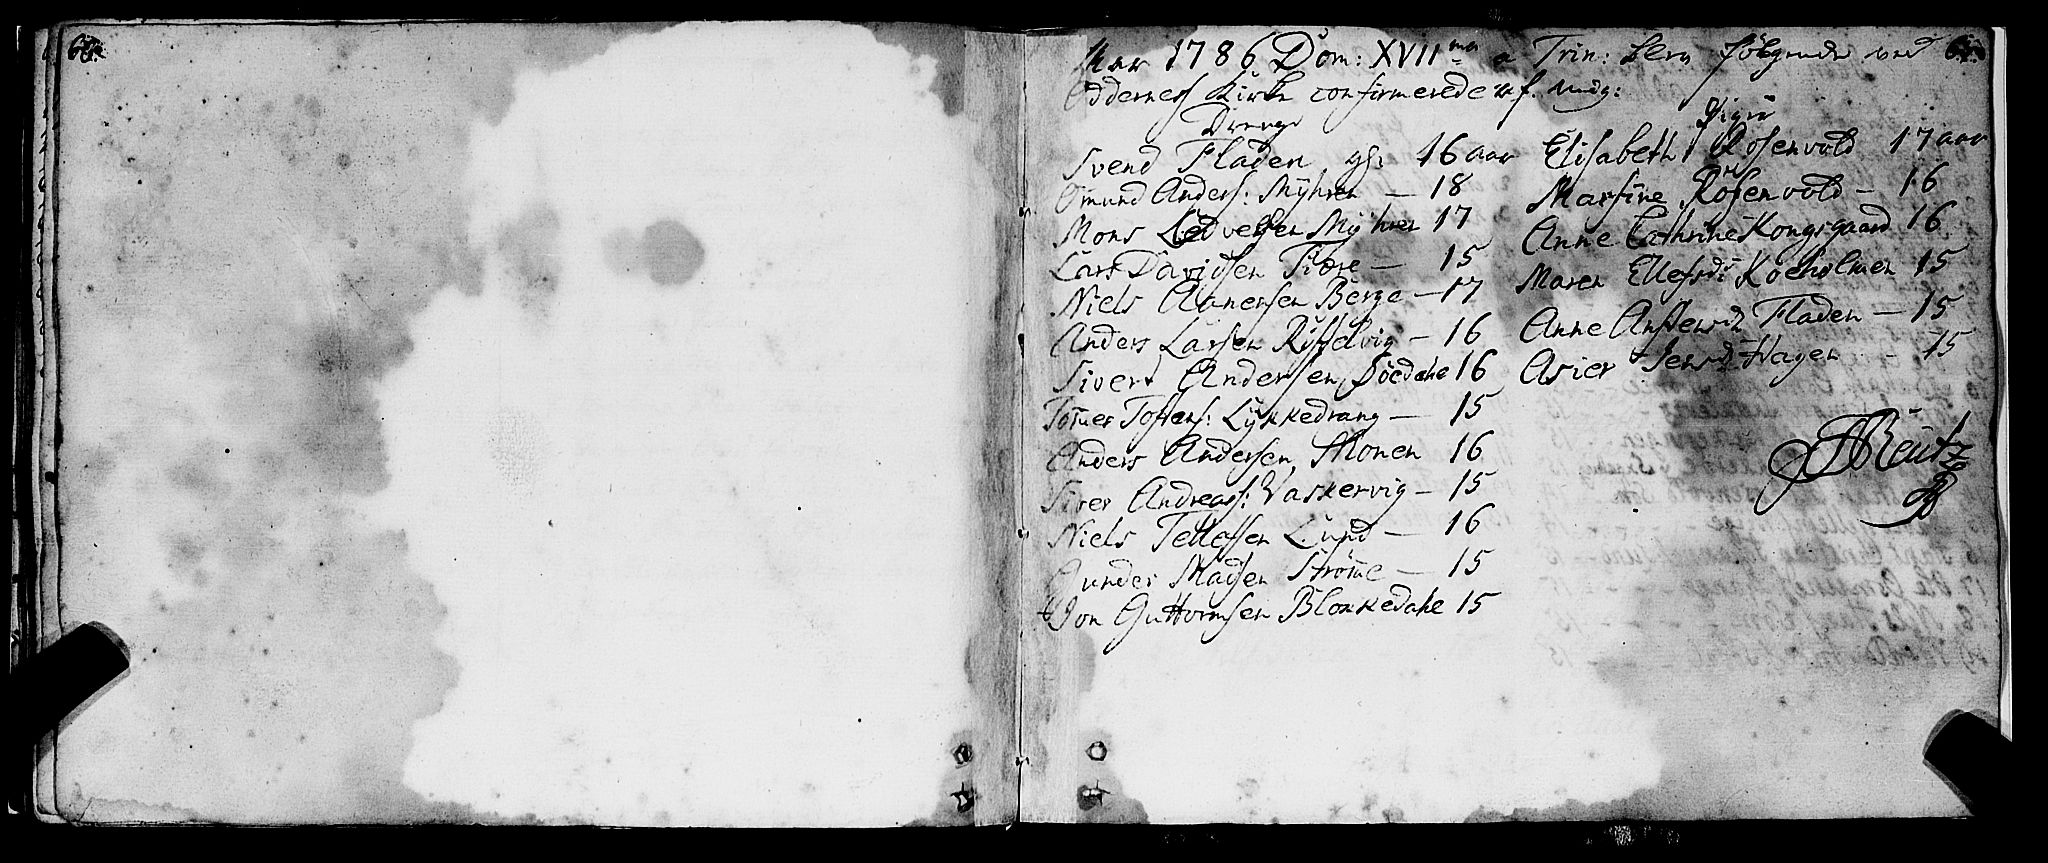 Aar 1786 Dom: XVII ma a Trin: blev følgende ved
Oddernes Kirke confirmerede af mig:
Drenge
Svend Fladen gl: 16 aar
Omund Anders: Myhren — 18
Mons Ledvelsen Myhren 17
Lars Davidsen Tiøre — 15
Niels Aanensen Berge — 17
Anders Larsen Rosselvig — 16
Sivert Andersen Döedahe 16
Torier Tostens: Lykkedrang — 15
Anders Andersen Monen 16
Siver Andreas: Vaskervig — 15
Niels Tellefsen Lund — 16
Gunder Madsen Strøme — 15
Jon Guttormsen Blokkedahe 15
Pigir
Elisabeth Rosenvold 17 aar
Marthe Rosenvold — 16
Anne Cathrine Kongsgaard 16
Maren Ellefsd Kocholmen 15
Anne Anstensd Fladen — 15
Asier Jensd Hagen — 15
JBReütz